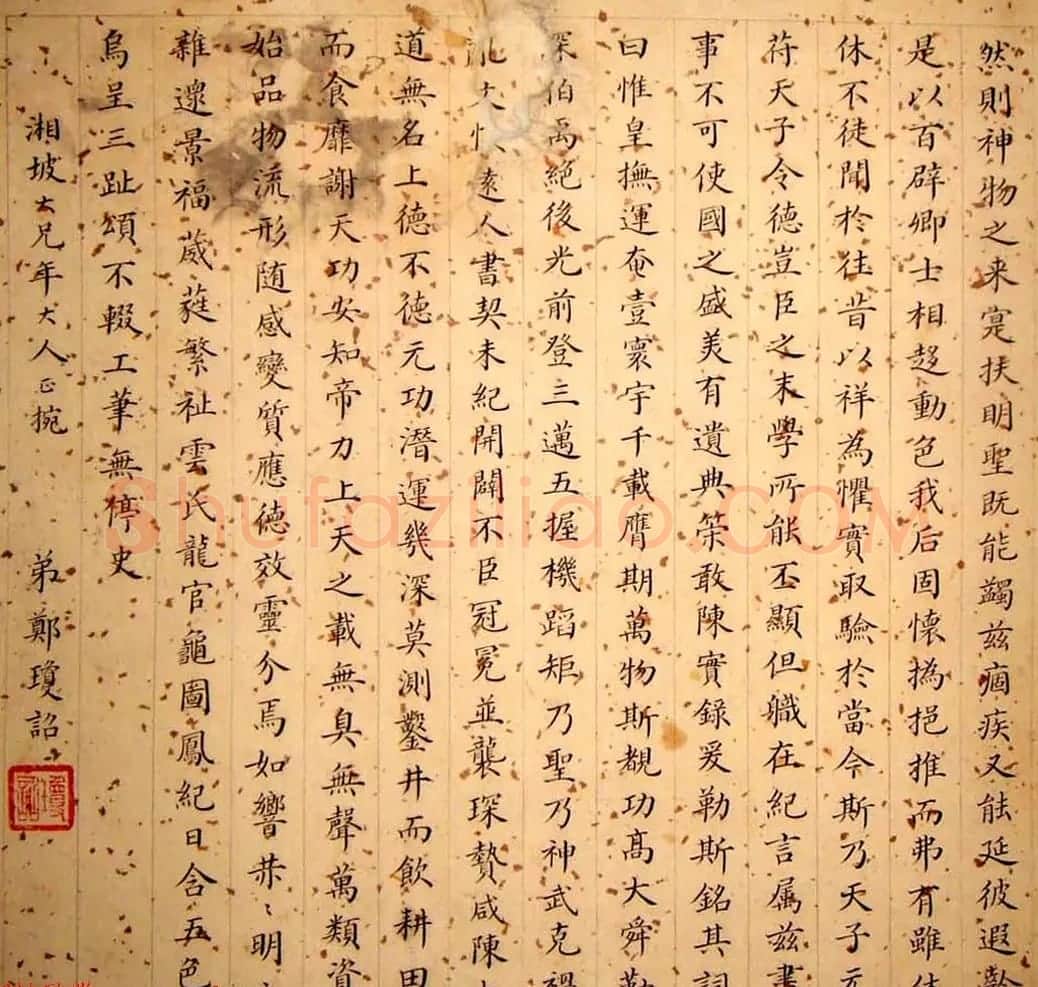 然則神物之来寔扶明聖既能蠲兹痼疾又能延彼遐齡
是以百辟卿士相趍動色我后固懷撝挹推而弗有雖
休不徒聞於往昔以祥為懼實取驗於當今斯乃天子元
符天子令德豈臣之末學所能丕顯但職在紀言属兹書
事不可使國之盛美有遺典策敢陳實錄爰勒斯銘其詞
曰惟皇撫運奄壹寰宇千載膺期萬物斯覩功高大舜勤
深伯禹絕後光前登三邁五握機蹈矩乃聖乃神武克禍
乱 遠人書契未紀開闢不臣冠冕並襲琛贄咸陳
道無名上德不德元功潛運幾深莫測鑿井而飲耕田
而食靡謝天功安知帝力上天之載無臭無聲萬類資
始品物流形随感變質應德效靈介焉如響赫〻明
雜遝景福葳蕤繁祉雲氏龍官龜圖鳳紀日含五色
烏呈三趾頌不輟工筆無停史
湘坡大兄年大人正捥
弟鄭瓊詔
Shufaziliao.COM